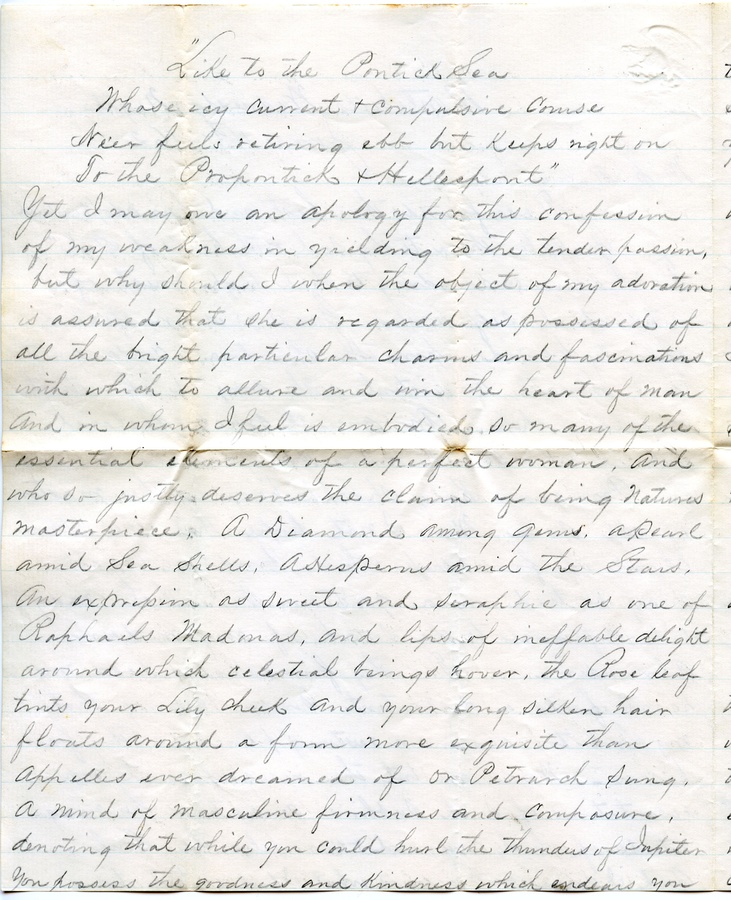 "Like to the Pontick Sea
Whose icy current + compulsive Course
Ne'er feels retiring ebb but keeps right on
To the Propontick + Hellespont"
Yet I may owe an apology for this confession
of my weakness in yielding to the tender passion,
but why should I when the object of my adoration
is assured that she is regarded as possessed of
all the bright particular charms and fascinations
with which to allure and win the heart of man
And in whom I feel is embodied so many of the
essential elements of a perfect woman, And
who so justly deserves the claim of being Natures
masterpiece. A Diamond among gems, a Pearl
amid Sea Shells, A Hesperus amid the Stars.
An expression as sweet and seraphic as one of
Raphaels Madonas, and lips of ineffable delight
around which celestial beings hover, the Rose leaf
tints your Lily cheek and your long silken hair
floats around a form more exquisite than
Appelles ever dreamed of or Petrarch Sung.
A mind of masculine firmness and composure,
denoting that while you could hurl the thunders of Jupiter
You possess the goodness and kindness which endears you